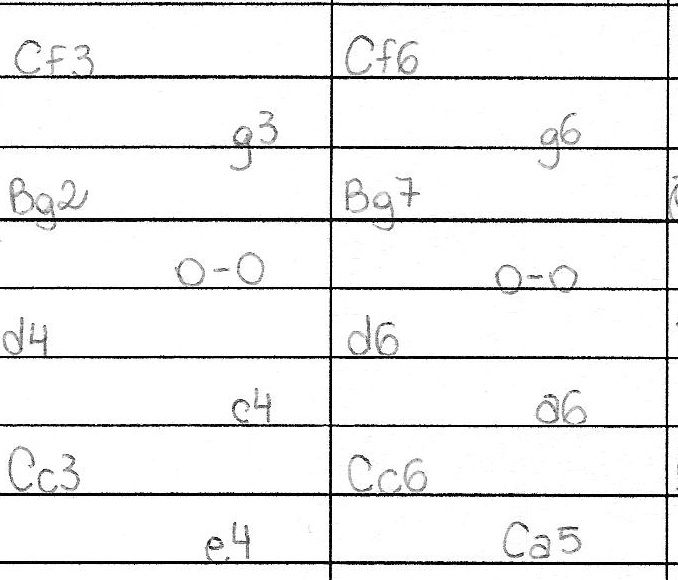 Cf3 Cf6
g3 g6
Bg2 Bg7
O-O O-O
d4 d6
c4 a6
Cc3 Cc6
e4 Ca5